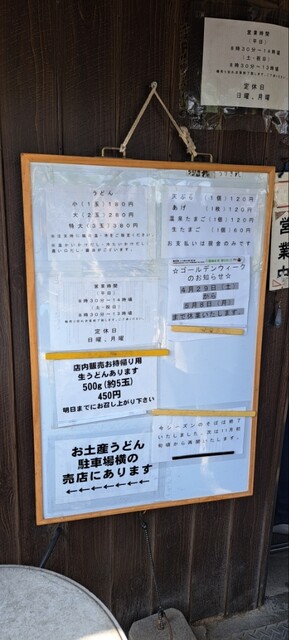 営業時間
(平日)
8時30分〜14時頃
(土・祝日)
8時30分〜13時頃
定休日
日曜、月曜
うどん
小(1玉)180円
大(2玉)280円
特大(3玉)380円
天ぷら(1個)120円
あげ(1枚)120円
温泉たまご(1個)80円
生たまご(1個)60円
お支払いは現金のみです
営業時間
(平日)
8時30分〜14時頃
(土・祝日)
8時30分〜13時頃
定休日
日曜、月曜
☆ゴールデンウィーク
のお知らせ☆
4月29日(土)
から
5月8日(月)
まで休業いたします。
店内販売お持帰り用
生うどんあります
500g(約5玉)
450円
明日までにお召し上がり下さい
今シーズンのそばは終了
いたしました。
お土産うどん
駐車場横の
売店にあります
←←←←←←←
営業中